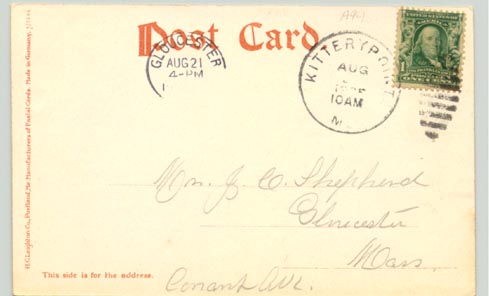 Post Card
A94
GLOUCESTER
AUG 21
4-PM
KITTERY POINT
AUG
10AM
M.
H.C. Leighton Co., Portland, Me. Manufacturers of Postal Cards. Made in Germany.
J. C. Shepherd
Gloucester
Mass.
This side is for the address.
Conant Ave.